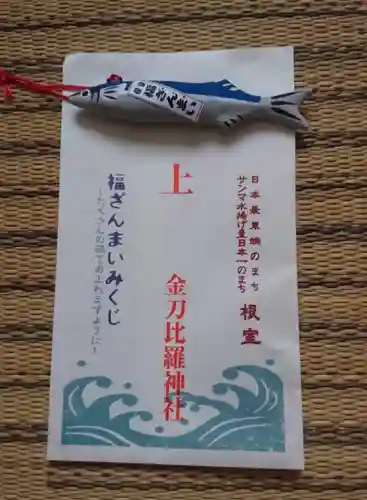 福ざんまい
上
日本最東端のまち
サンマ水揚げ量日本一のまち
根室
金刀比羅神社
福ざんまいみくじ
～たくさんの福であふれますように～